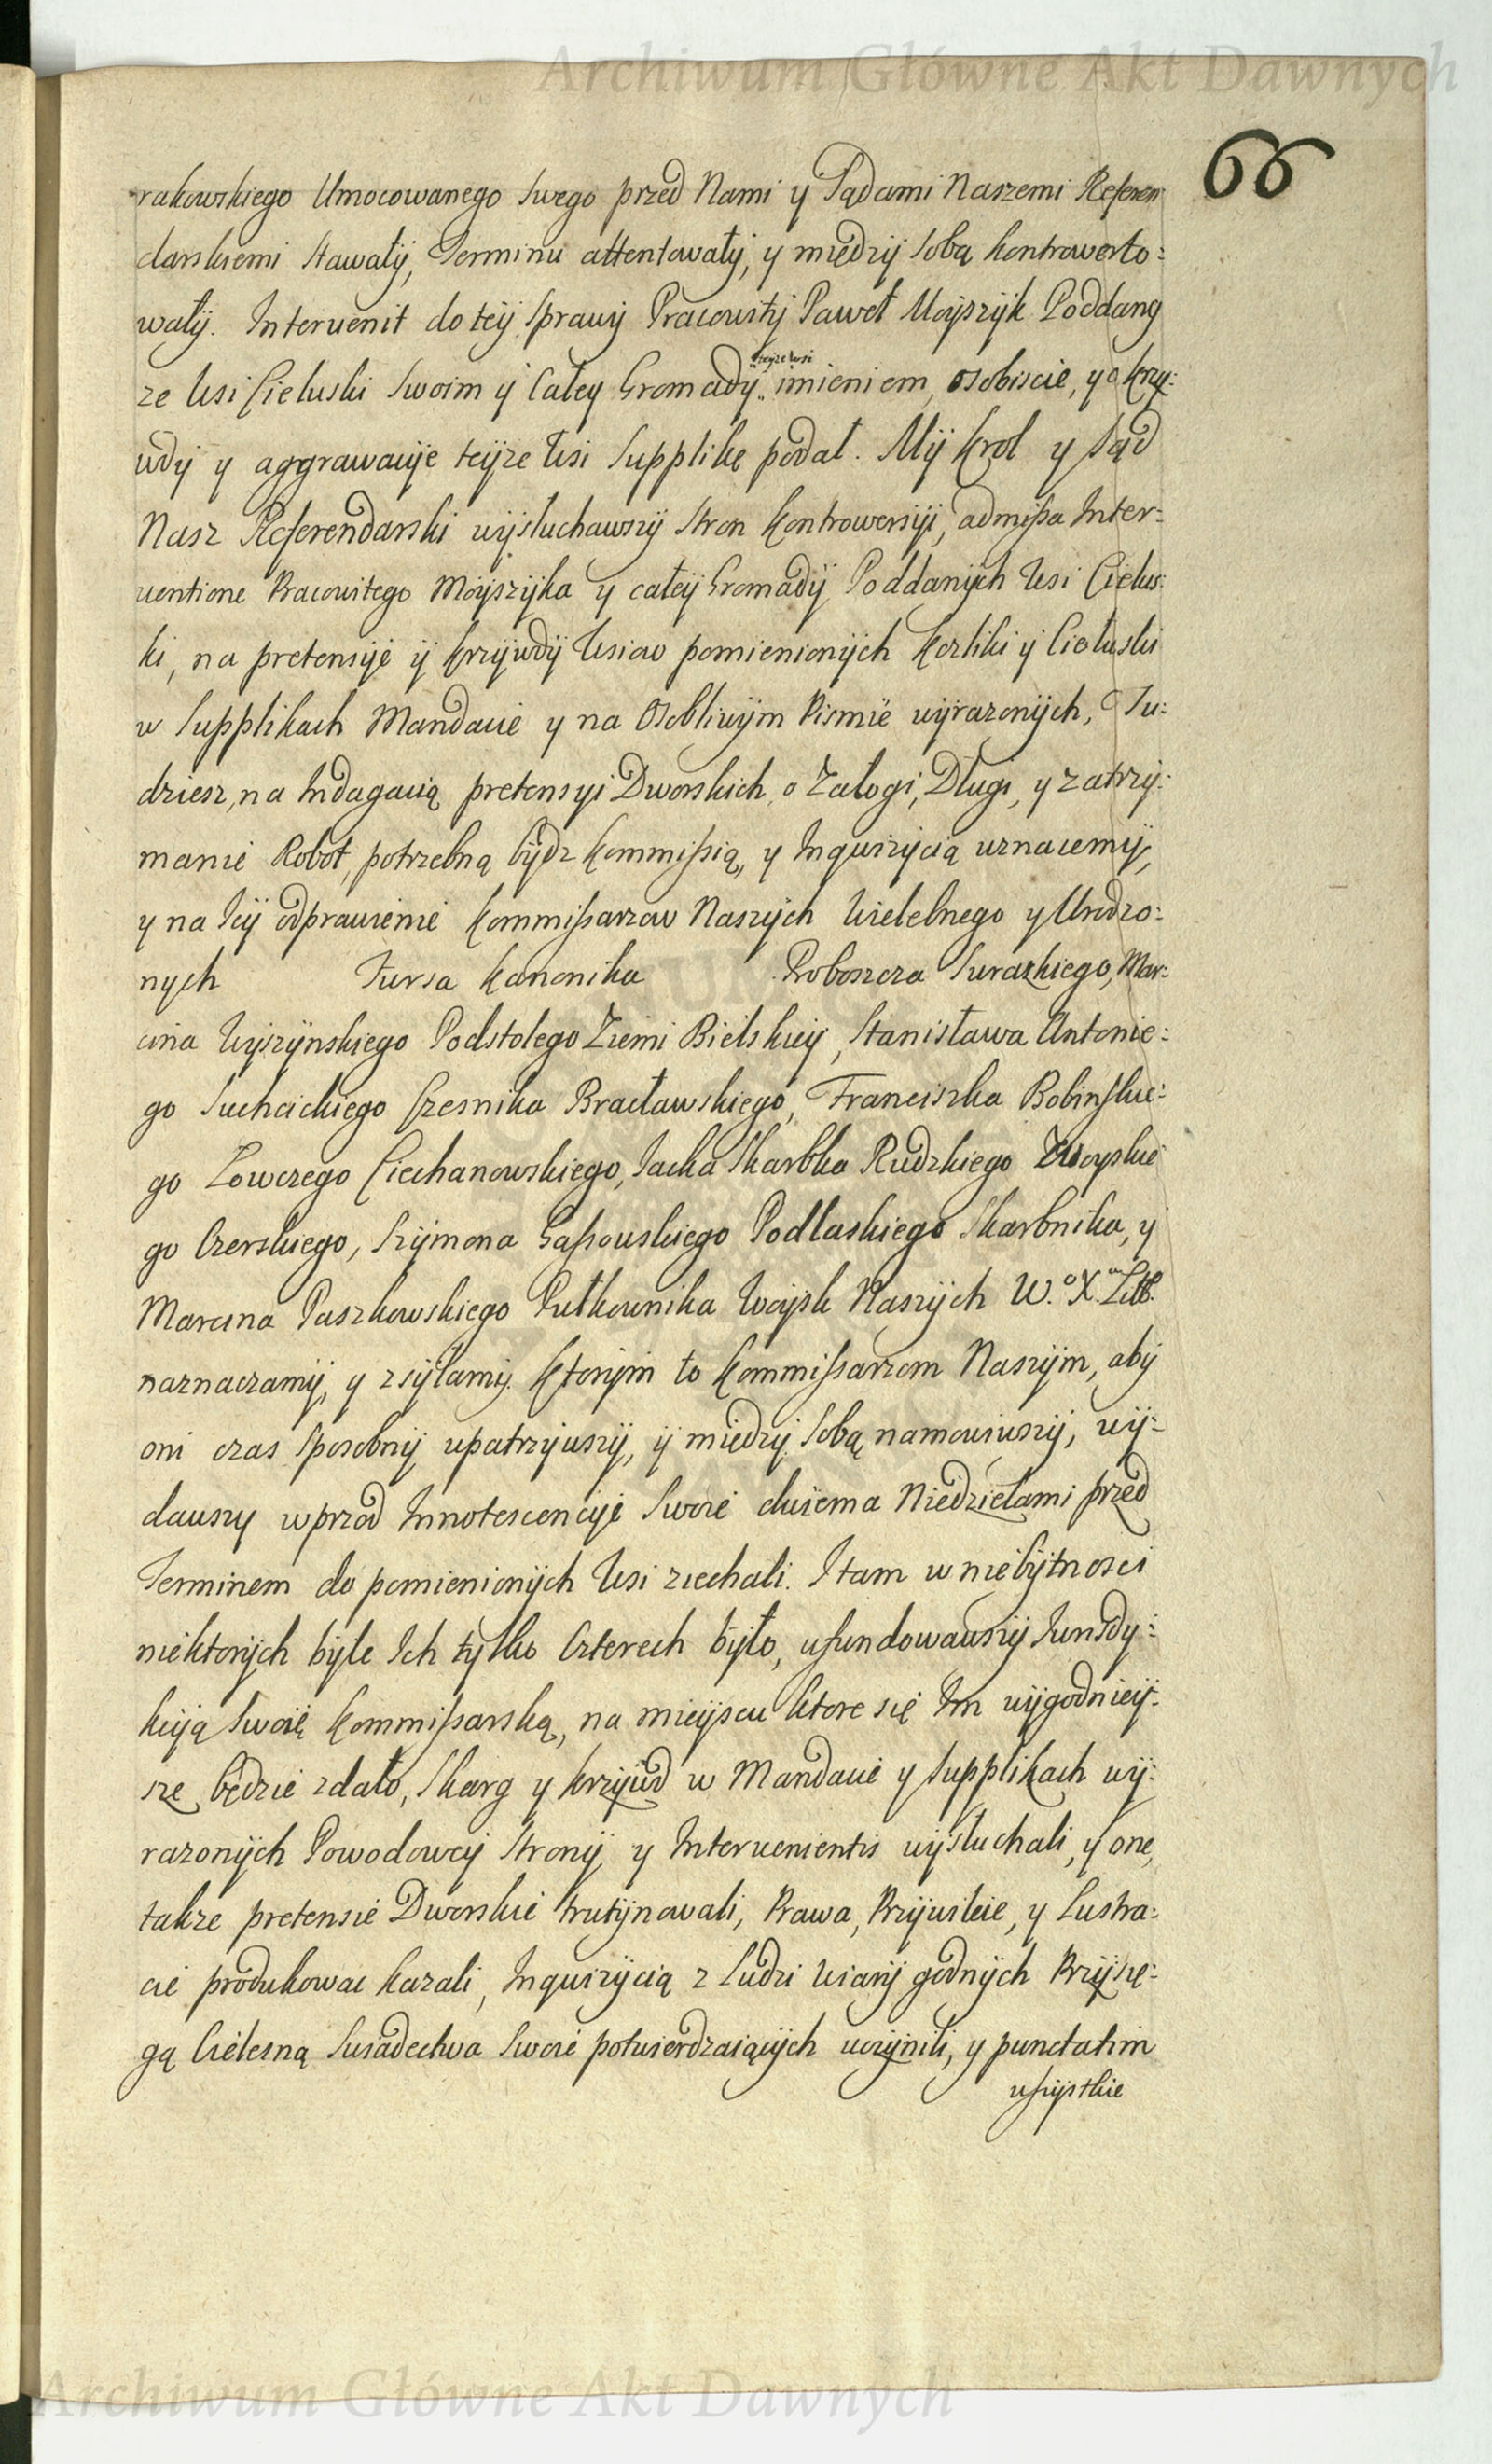 Archiwum Główne Akt Dawnych
66
rakowskiego Umocowanego Swego przed Nami y Sądami Naszemi Referen
darskiemi Stawały, Terminu attentowały, y między sobą kontrowerto:
wały. Interuenit do tey Sprawy Pracowity Paweł Moyszyk Poddany
teyze wsi
ze Wsi Cieluski Swoim y Całey Gromady imieniem, osobiscie, y o krzy:
wdy y aggrawacye teyze Wsi Supplikę podał. My Krol y Sąd
Nasz Referendarski wysłuchawszy Stron Kontrowersyi, admissa Inter:
uentione Pracowitego Moyszyka y całey Gromady Poddanych Wsi Cielus:
ki, na pretensye y krzywdy Wsiow pomienionych Kozliki y Cieluski
w Supplikach Mandacie y na Osobliwym Pismie wyrazonych, Tu:
dziesz, na Indagacią pretensyi Dworskich, o Załogi, Długi, y zatrzy:
manie Robot, potrzebną bydz Kommissią, y Inquizycią uznaiemy,
y na Iey odprawienie Kommissarzow Naszych Wielebnego y Urodzo:
nych Tursa Kanonika Proboszcza Surazkiego, Mar:
cina Wyszynskiego Podstolego Ziemi Bielskiey, Stanisława Antonie:
go Suchcickiego Czesnika Bracławskiego, Franciszka Bobinskie:
go Łowczego Ciechanowskiego, Jacka Skarbka Rudzkiego Woyskie
go Czerskiego, Szymona Gassowskiego Podlaskiego Skarbnika, y
Marcina Paszkowskiego Pułkownika Woysk Naszych W.º X.ª Litt.
naznaczamy, y zsyłamy. Ktorym to Kommissarzom Naszym, aby
oni czas sposobny upatrzywszy, y między Sobą namowiwszy, wy:
dawszy wprzod Innotescencye Swoie dwiema Niedzielami przed
Terminem do pomienionych Wsi ziechali. I tam w niebytnosci
niektorych byle Ich tylko Czterech było, ufundowawszy Jurisdy:
kcyą Swoię Kommissarską, na mieyscu ktore się Im wygodniey:
sze będzie zdało, Skarg y krzywd w Mandacie y Supplikach wy:
razonych Powodowey Strony y Interuenientis wysłuchali, y one,
takze pretensie Dworskie trutynowali, Prawa, Przywileie, y Lustra:
cie produkowac kazali, Inquizycią z Ludzi Wiary godnych Przysię:
gą Cielesną Swiadectwa Swoie potwierdzaiących uczynili, y punctatim
wszystkie
Archiwum Główne Akt Dawnych